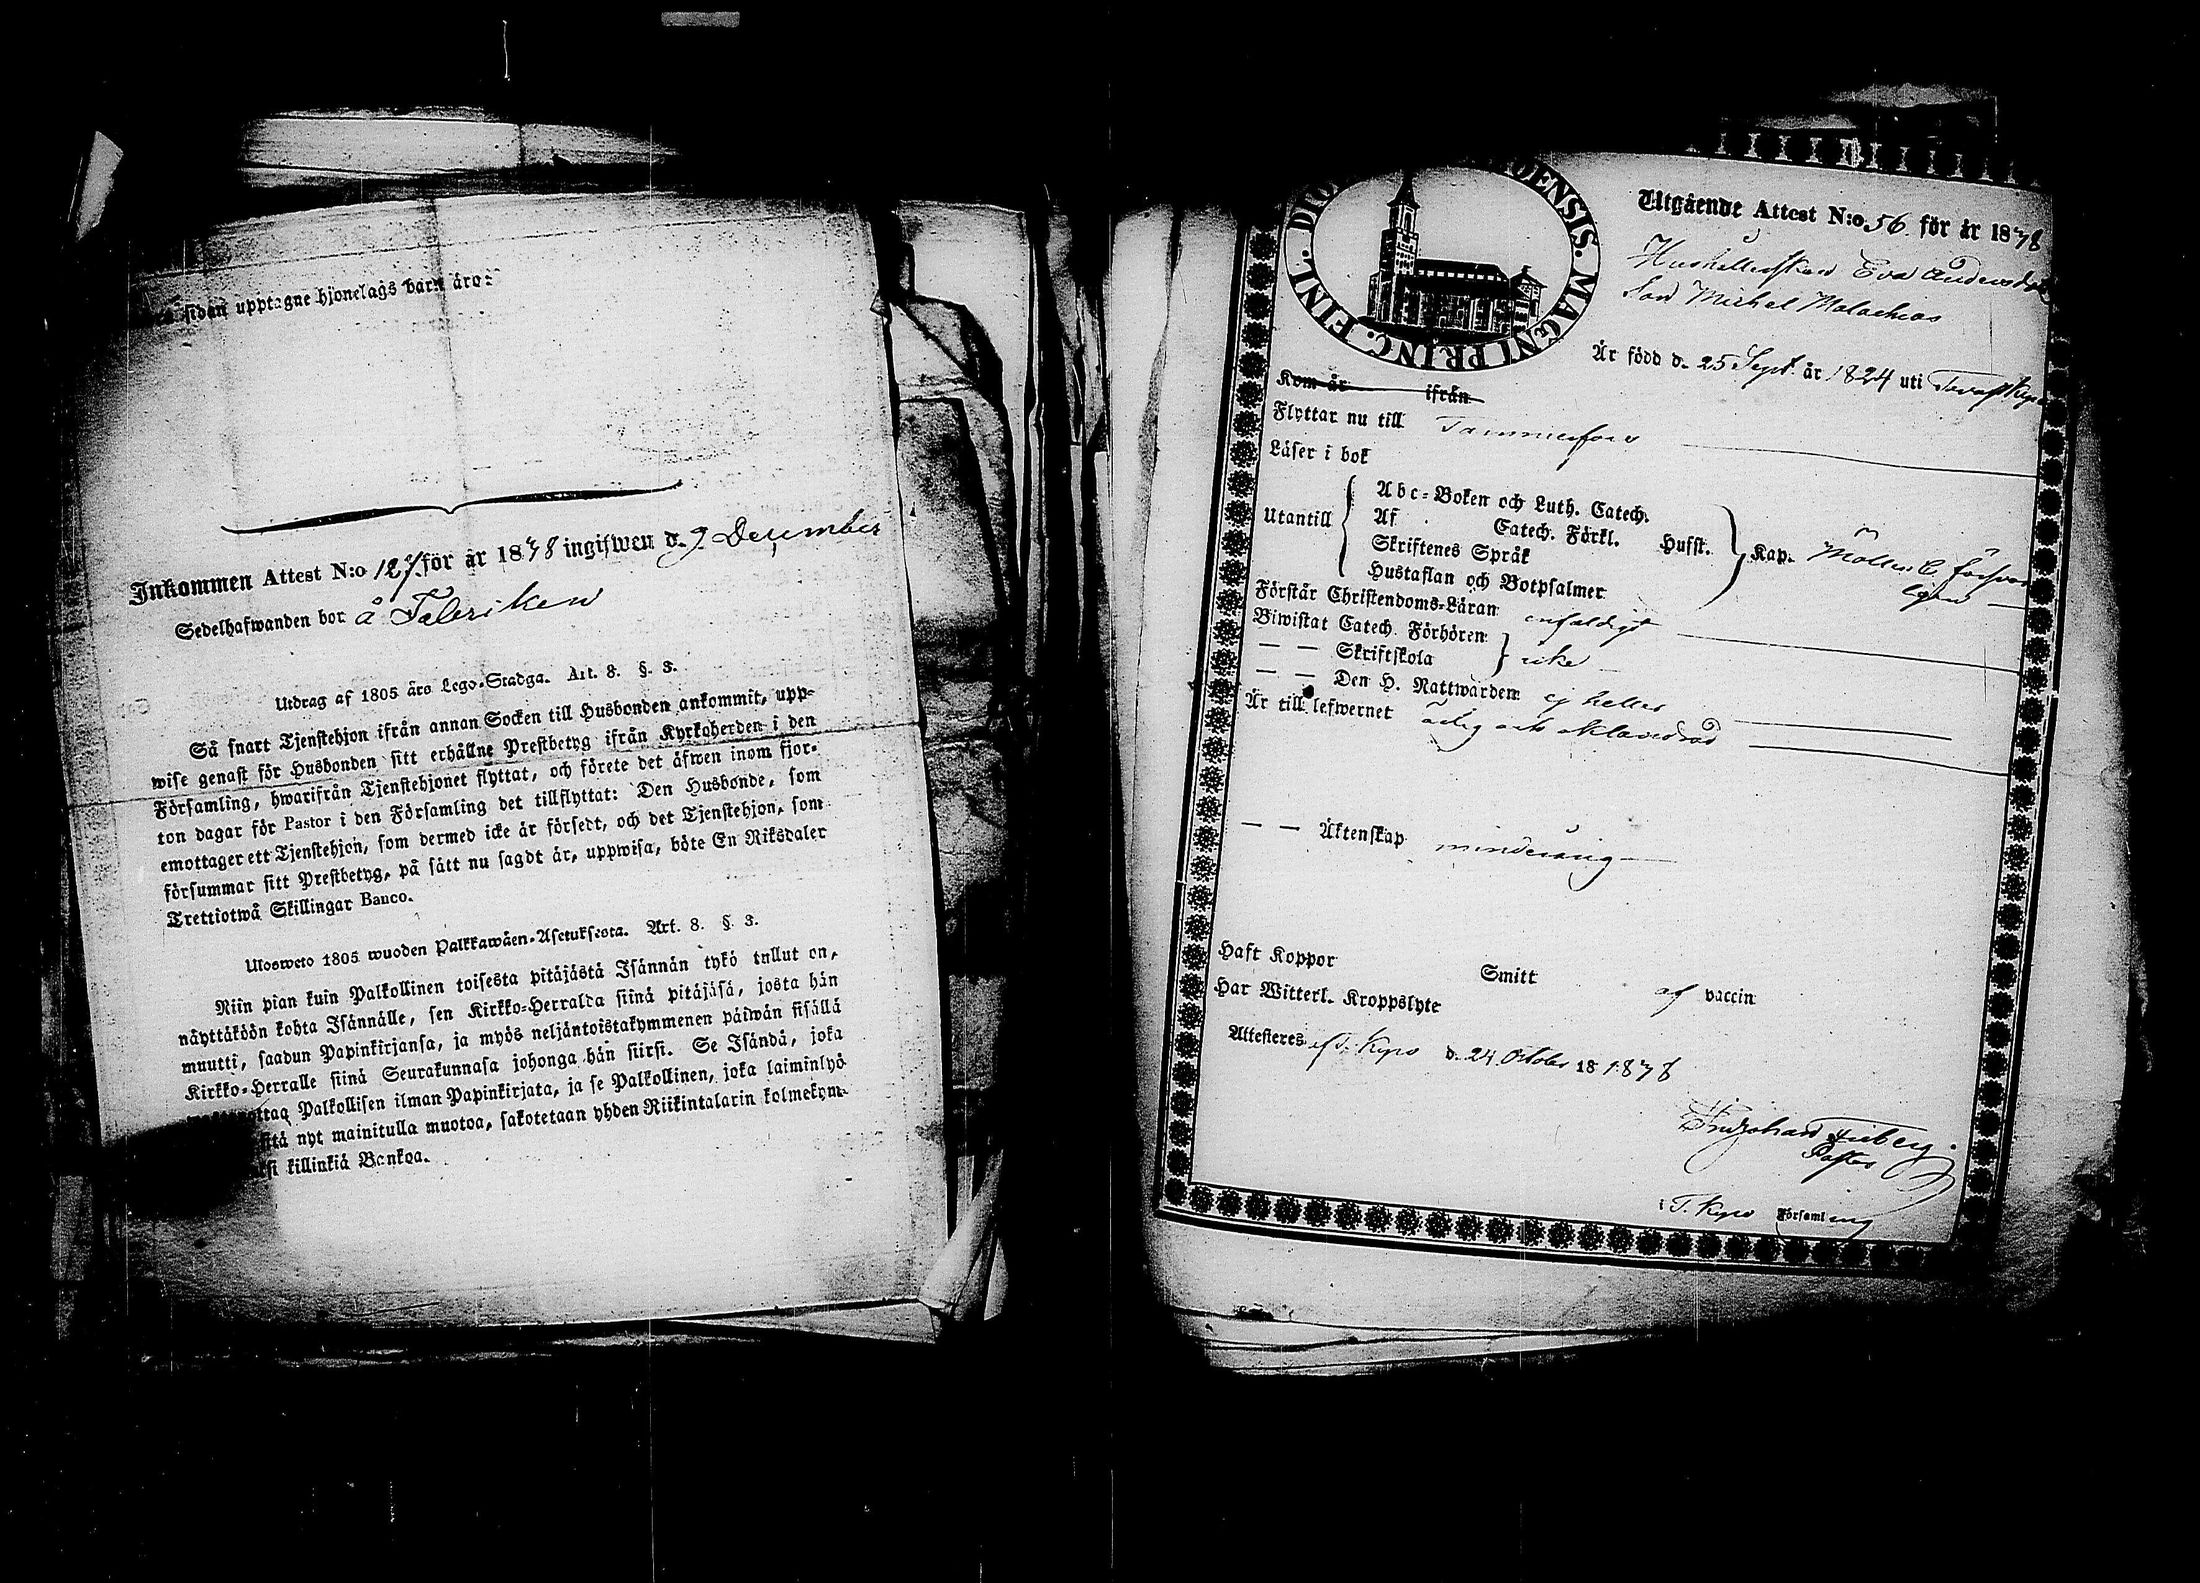 sidan upptagne hjonelags barn äro:
Inkommen Attest N:o 127 för år 1838 ingifwen d. 9 December
Sedelhafwanden bor å Fabriken
Utdrag af 1805 års Lego-Stadga. Art. 8. §. 3.
Så snart Tjenstehjon ifrån annan Socken till Husbonden ankommit, upp-
wise genast för Husbonden sitt erhållne Prestbetyg ifrån Kyrkoherden i den
Församling, hwarifrån Tjenstehjonet flyttat, och förete det äfwen inom fjor-
ton dagar för Pastor i den Församling det tillflyttat: Den Husbonde, som
emottager ett Tjenstehjon, som dermed icke är försedt, och det Tjenstehjon, som
försummar sitt Prestbetyg, på sätt nu sagdt är, uppwisa, böte En Riksdaler
Trettiotwå Skillingar Banco.
Ulosweto 1805 wuoden Palkkawäen-Asetuksesta. Art. 8. §. 3.
Niin pian kuin Palkollinen toisesta pitäjästä Isännän tykö tullut on,
näyttäköön kohta Isännälle, sen Kirkko-Herralda siinä pitäjäsä, josta hän
muutti, saadun Papinkirjansa, ja myös neljäntoistakymmenen päiwän sisällä
Kirkko-Herralle siinä Seurakunnasa johonga hän siirsi. Se Isändä, joka
Palkollisen ilman Papinkirjata, ja se Palkollinen, joka laiminlyö
nyt mainitulla muotoa, sakotetaan yhden Riikintalarin kolmekym-
killinkiä Bankoa.
FINL. DIOECESIS. MAGNI PRINC.
Utgående Attest N:o 56 för år 1838
Eva Andersdr
Son Michel Malachias
Är född d. 25 Sept. år 1824 uti Tavastkyro
Kom år ifrån
Flyttar nu till Tammerfors
Läser i bok
Utantill Abc-Boken och Luth. Catech.
Af Catech. Förkl. Hufst. Kap. förswar
Skriftenes Språk
Hustaflan och Botpsalmer
Förstår Christendoms-Läran enfaldigt
Biwistat Catech. Förhören
— — Skriftskola icke
— — Den H. Nattwarden ej heller
Är till lefwernet ärlig och oklanderad
— — Äktenskap minderårig
Haft Koppor Smitt af vaccin
Har Witterl. Kroppslyte
Attesteras af T. Kyro d. 24 October 18 1838
Pastor
i T. Kyro Församling